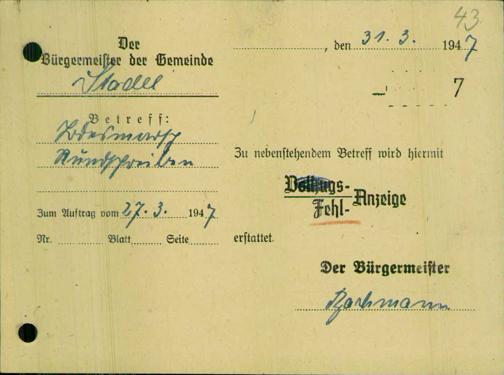 43
Der
Bürgermeister der Gemeinde
Stadel
, den 31. 3. 1947
7
Betreff:
Todesmarsch
Rundschreiben
Zu nebenstehendem Betreff wird hiermit
Vollzugs-
Fehl-
Anzeige
Zum Auftrag vom 27. 3. 1947
Nr. Blatt Seite
erstattet.
Der Bürgermeister